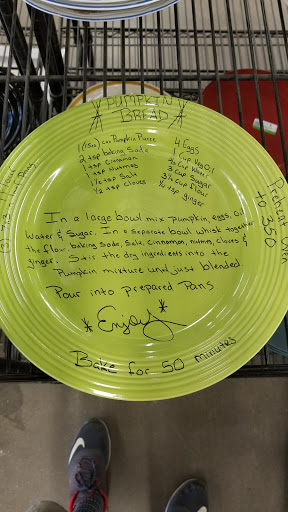 PUMPKIN
BREAD
1 (15oz) can Pumpkin Puree
2 tsp baking Soda
1 tsp Cinnamon
1 tsp Nutmeg
1½ tsp Salt
½ tsp Cloves
4 Eggs
1 cup Veg Oil
⅔ cup Water
3 cup Sugar
3½ cup flour
½ tsp ginger
Preheat Oven
to 350
In a large bowl mix pumpkin, eggs, Oil
Water & Sugar. In a separate bowl whisk together
the flour, baking Soda, Salt, Cinnamon, nutmeg, cloves &
ginger. Stir the dry ingredients into the
Pumpkin mixture until just blended
Pour into prepared Pans
*Enjoy*
Bake for 50 minutes